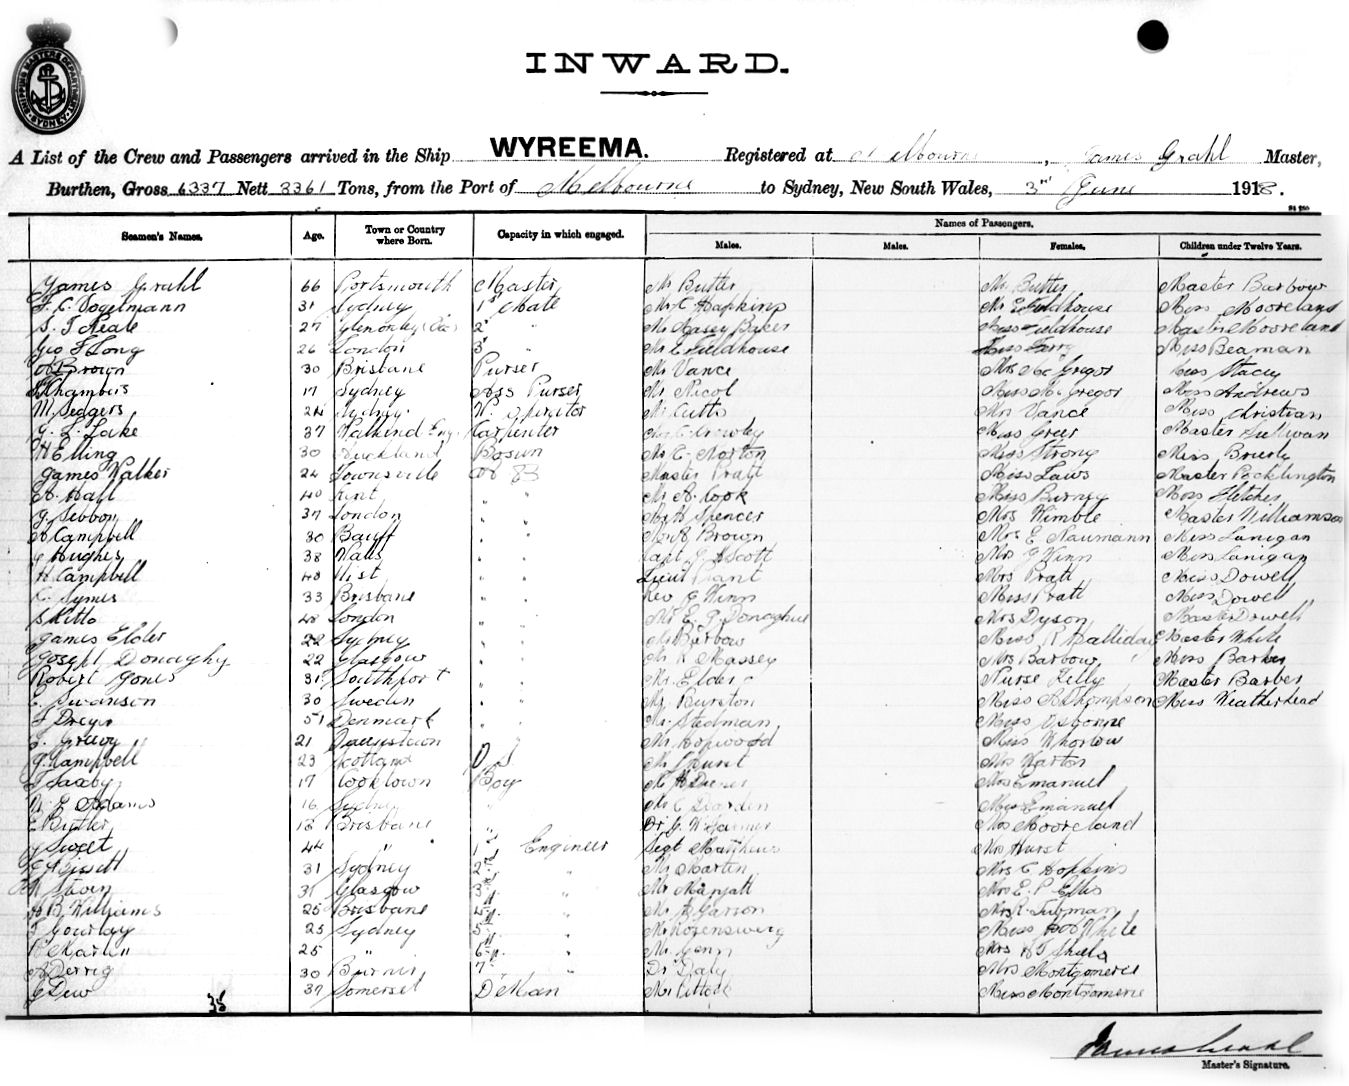 SHIPPING MASTERS DEPARTMENT SYDNEY
INWARD.
A List of the Crew and Passengers arrived in the Ship WYREEMA. Registered at Melbourne, James Grahl Master,
Burthen, Gross 6337 Nett 3361 Tons, from the Port of Melbourne to Sydney, New South Wales, 3rd June 1918.
Names of Passengers.
Seamen's Names. Age. Town or Country where Born. Capacity in which engaged. Males. Males. Females. Children under Twelve Years.
James Grahl 66 Portsmouth Master Mr Butter Mrs Butter Master Barbour
F. C. Vogelmann 31 Sydney 1st Mate Mr C Hopkins Mrs E Fieldhouse Miss Mooreland
S. T Neale 27 Glenorchy 2 " Mr Casey Baker Miss Fieldhouse Master Mooreland
Geo F Long 26 London 3 " Mr E Fieldhouse Miss Terry Miss Beaman
Brown 30 Brisbane Purser Mr Vance Mrs McGregor Miss Stacey
Chambers 17 Sydney Ass Purser Mr Nicol Miss McGregor Miss Andrews
M. Seggers 24 Sydney W. operator Mr Cutts Mrs Vance Miss Christian
G. L. Lake 37 Carpenter Mr C Crowley Miss Greer Master Sullivan
H Elling 30 Auckland Bosun Mr C. Norton Miss Strong Miss Brierly
James Walker 24 Townsville AB 83 Master Pratt Miss Laws Master Pocklington
A. Hall 40 Kent " " Mr A. Cook Miss Burney Miss Fletcher
G. Sebbon 37 London " " Mr H Spencer Mrs Wimble Master Williamson
A Campbell 30 Banff " " Mr A Brown Mrs E Naumann Miss Lanigan
J Hughes 38 Wales " " Capt J Scott Mrs G Winn Miss Lanigan
H Campbell 48 Uist " " Lieut Grant Mrs Pratt Miss Dowell
C. Symes 33 Brisbane " " Rev G Winn Miss Pratt Miss Dowell
S Kitto 48 London " " Mr E. J Donaghue Mrs Dyson Master Dowell
James Elder 22 Sydney " " Mr Barbour Miss R Halliday Master White
Joseph Donaghy 22 Glasgow " " Mr R Massey Mrs Barbour Miss Barber
Robert Jones 31 Southport " " Mr Elder Nurse Kelly Master Barber
C. Swanson 30 Sweden " " Mr Burston Miss B Thompson Miss Weatherhead
J Dreyer 51 Denmark " " Mr Stedman Miss Osborne
J. Greevy 21 Queenstown " " Mr Hopwood Miss Whorlow
G. Campbell 23 Scotland O S Mr J Hunt Mrs Warton
17 Cooktown Boy Mrs Emanuel
W. E Adams 16 Sydney " Mr C Dearden Miss Emanuel
E Butler 18 Brisbane " Dr G. W Farmer Mrs Mooreland
J Sweet 44 " 1st Engineer Segt Matthews Mrs Hurst
31 Sydney 2nd " Mr Martin Mrs C Hopkins
31 Glasgow 3rd " Mr Maryatt Mrs E. P. Ellis
A B Williams 25 Brisbane 4th " Mr A Garson Mrs R. Tubman
T Gourlay 25 Sydney 5th " Mr Rosensweig Miss White
R Martin 25 " 6th " Mr Genn Mrs Shields
A Derrig 30 7 " Dr Daly Mrs Montgomerie
G Dew 37 Somerset D Man Mr Pittock Miss Montgomerie
35
James Grahl
Master's Signature.